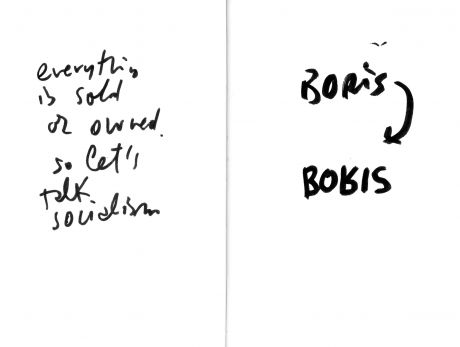 everything
is sold
or owned.
so let's
talk
socialism
BORIS
BOBIS